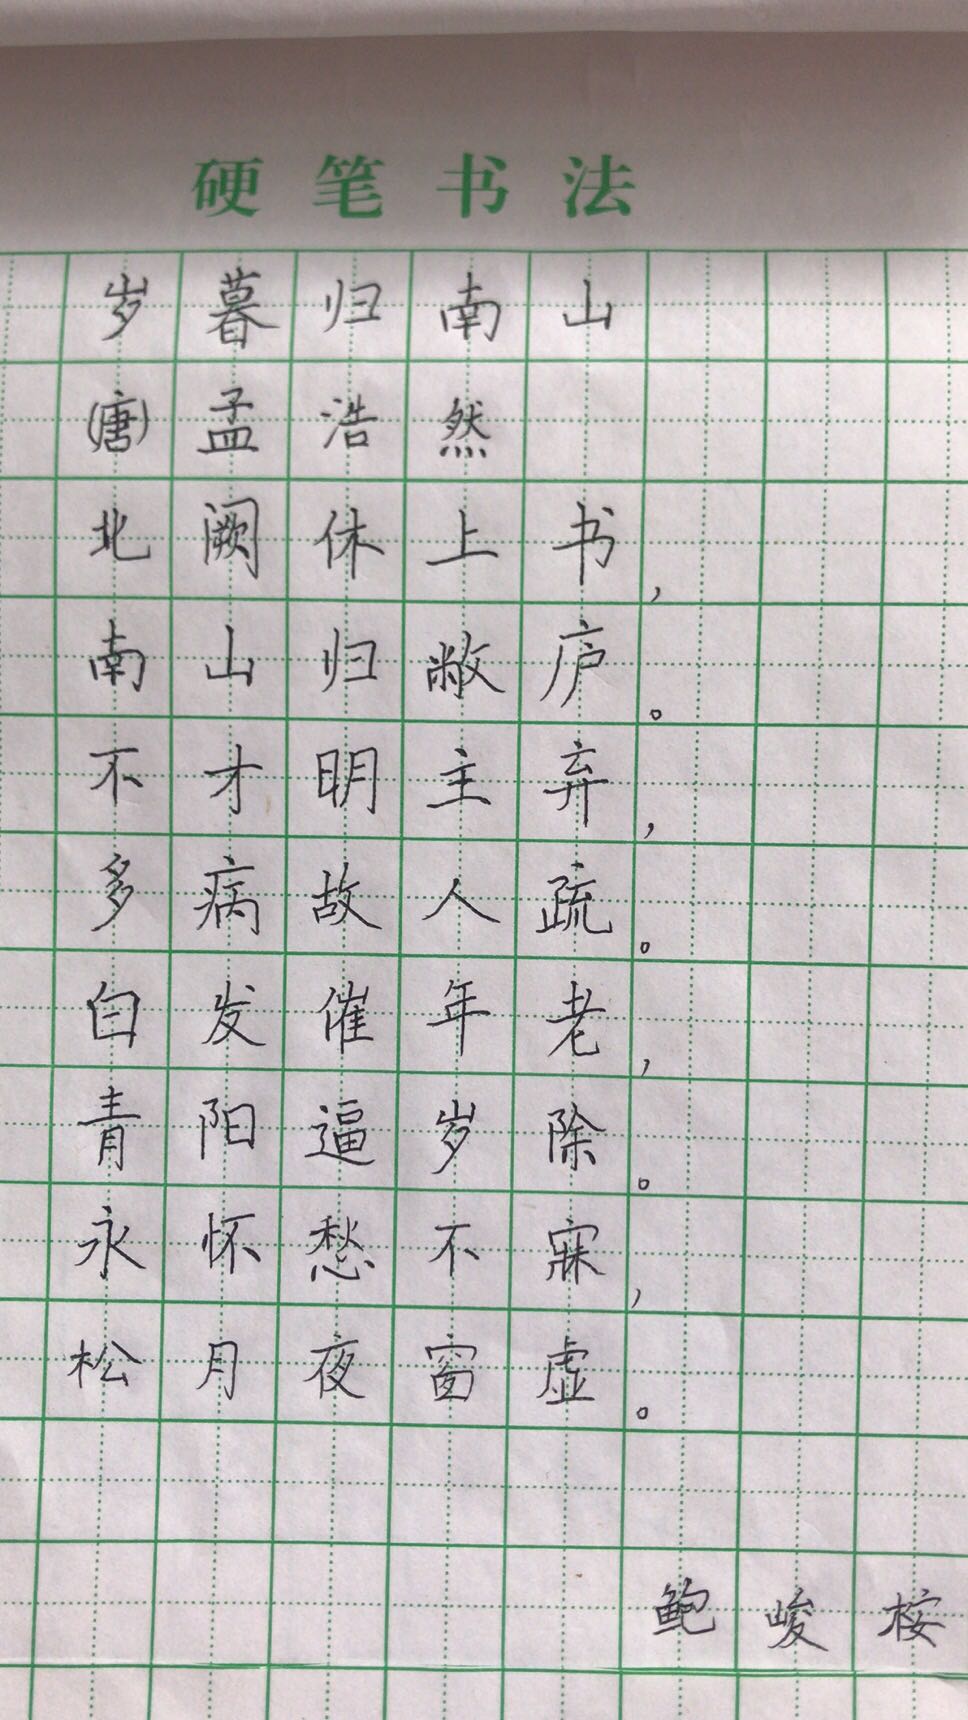 硬笔书法
岁暮归南山
(唐)孟浩然
北阙休上书,
南山归敝庐。
不才明主弃,
多病故人疏。
白发催年老,
青阳逼岁除。
永怀愁不寐,
松月夜窗虚。
鲍峻桉